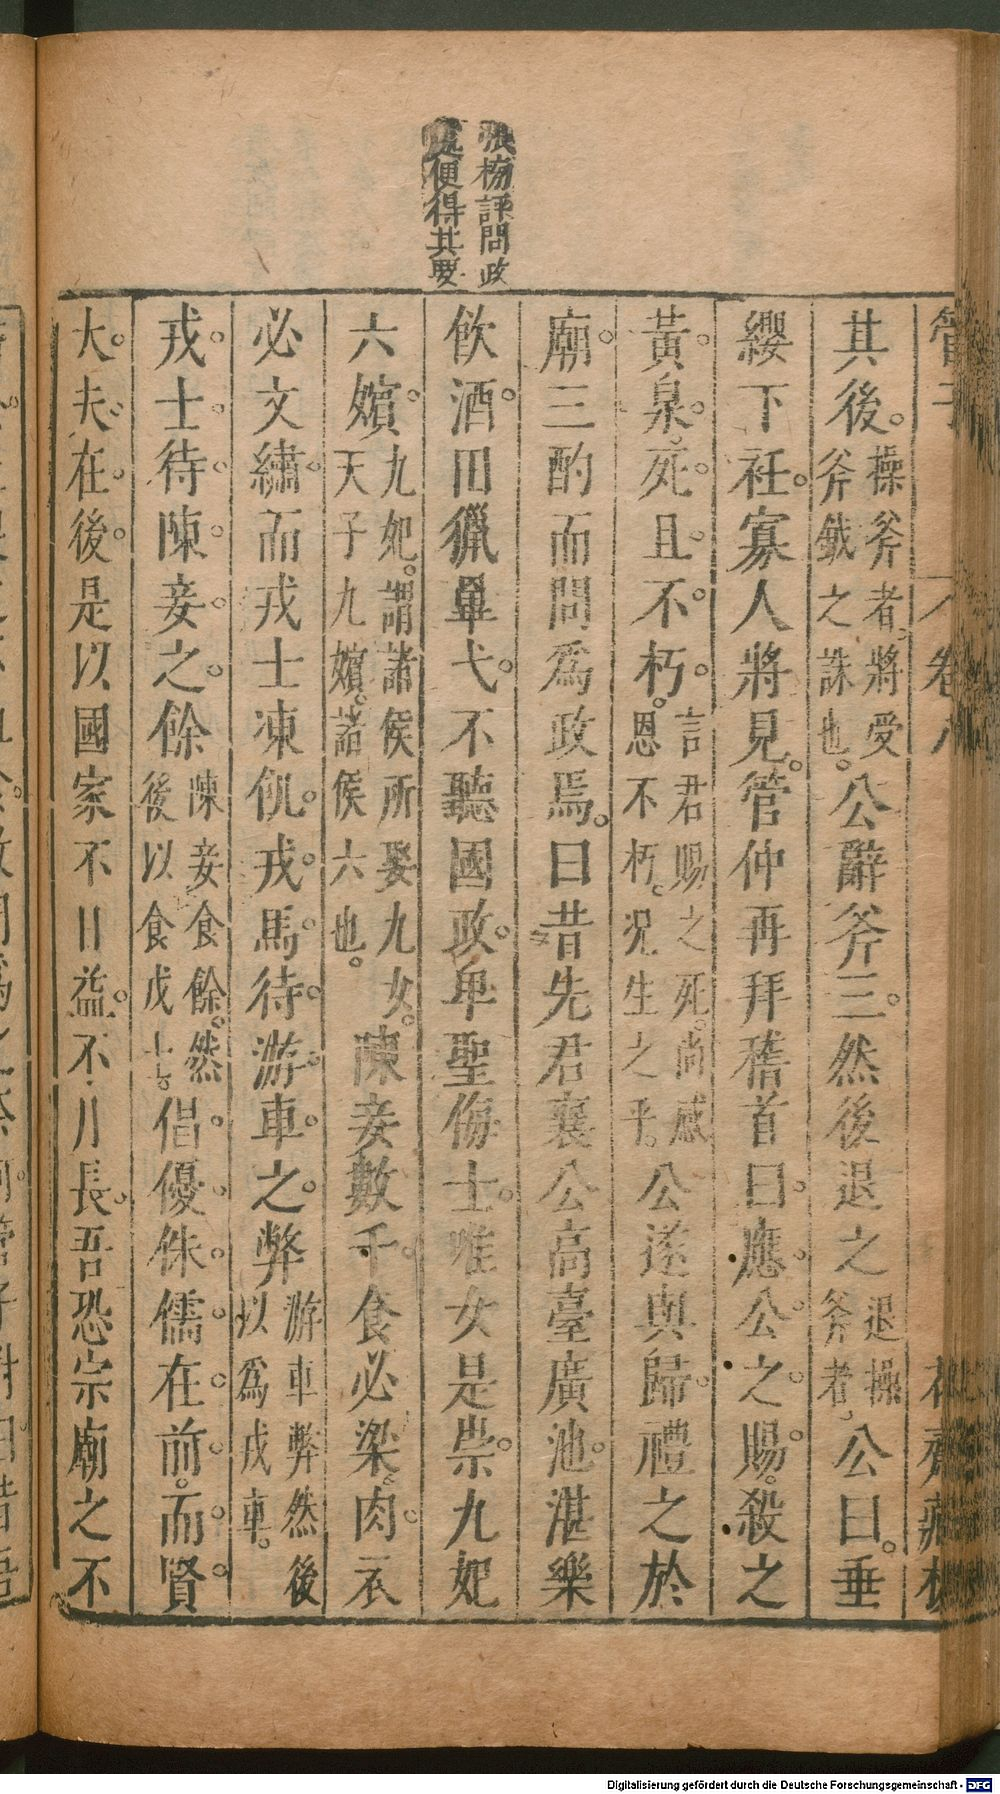 張榜評問政
處便得其要
管子 卷八 花齋藏板
其後。操斧者。將受斧鉞之誅也。公辭斧三。然後退之退操斧者。公曰。垂
纓下衽。寡人將見。管仲再拜稽首曰。應公之賜。殺之
黃泉。死且不朽。言君賜之死。尚感恩不朽。况生之乎。公遂與歸。禮之於
廟。三酌而問爲政焉。曰昔先君襄公高臺廣池。湛樂
飲酒。田獵畢弋。不聽國政。卑聖侮士。唯女是崇。九妃
六嬪。九妃。謂諸侯所娶九女。天子九嬪。諸侯六也。陳妾數千。食必粱肉。衣
必文繡。而戎士凍飢。戎馬待游車之弊游車弊然後以爲戎車。
戎士待陳妾之餘陳妾食餘。然後以食戎士。倡優侏儒在前。而賢
大夫在後。是以國家不日益。不月長。吾恐宗廟之不
Digitalisierung gefördert durch die Deutsche Forschungsgemeinschaft - DFG